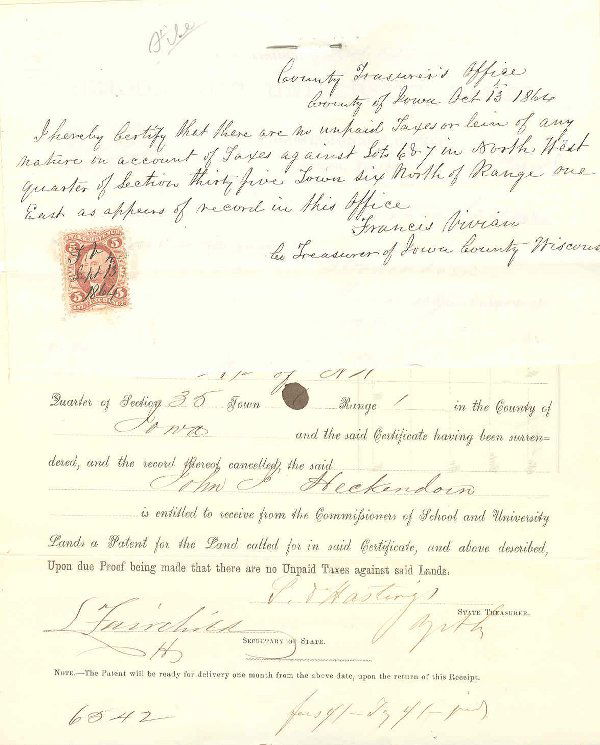 File
County Trasurer's Office
County of Iowa Oct 13 1864
I hereby Certify that there are no unpaid Taxes or lein of any
nature on account of Taxes against Lots 6 & 7 in North West
Quarter of Section thirty five Town six North of Range one
East as appears of record in this Office
Francis Vivian
Co Treasurer of Iowa County Wiscons
5 5
Sept 13
1864
5 5
of N W
Quarter of Section 35 Town 6 Range 1 in the County of
Iowa and the said Certificate having been surren-
dered, and the record thereof cancelled, the said
John S Heckendorn
is entitled to receive from the Commissioners of School and University
Lands a Patent for the Land called for in said Certificate, and above described,
Upon due Proof being made that there are no Unpaid Taxes against said Lands:
S. D Hastings
STATE TREASURER.
L Fairchild
SECRETARY of STATE.
NOTE.—The Patent will be ready for delivery one month from the above date, upon the return of this Receipt.
6542